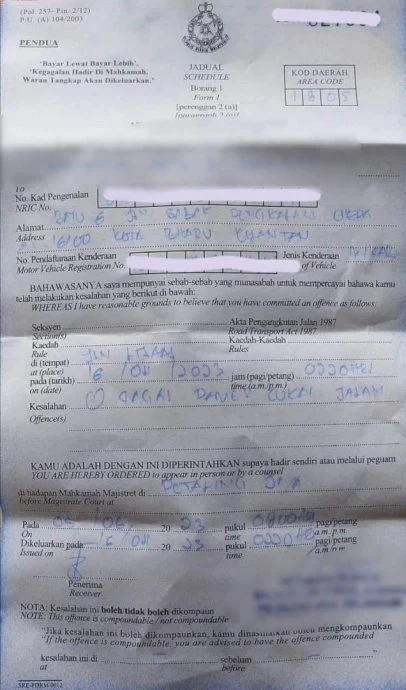 (Pol. 257- Pin. 2/12)
P.U. (A) 104/2003
PENDUA
'Bayar Lewat Bayar Lebih'.
'Kegagalan Hadir Di Mahkamah,
Waran Tangkap Akan Dikeluarkan.'
JADUAL
SCHEDULE
Borang 1
Form 1
[perenggan 2 (a)]
[paragraph 2 (a)]
KOD DAERAH
AREA CODE
1805
To
No. Kad Pengenalan
NRIC No.
BATU 6 JLN PENGKALAN CHEPA
Alamat
Address
16100 KOTA BHARU
No. Pendaftaran Kenderaan
Motor Vehicle Registration No.
Jenis Kenderaan
of Vehicle
BAHAWASANYA saya mempunyai sebab-sebab yang munasabah untuk mempercayai bahawa kamu
telah melakukan kesalahan yang berikut di bawah:
WHEREAS I have reasonable grounds to believe that you have committed an offence as follows:
Seksyen
Section(s)
Akta Pengangkutan Jalan 1987
Road Transport Act 1987
Kaedah
Rule
Kaedah-Kaedah
Rules
di (tempat)
at (place)
JLN
pada (tarikh)
on (date)
16/04/2023
jam (pagi/petang)
time (a.m./p.m.)
Kesalahan
GAGAL CUKAI JALAN
Offence(s)
KAMU ADALAH DENGAN INI DIPERINTAHKAN supaya hadir sendiri atau melalui peguam
YOU ARE HEREBY ORDERED to appear in person or by a counsel
di hadapan Mahkamah Majistret di
before Magistrate Court at
PETALING JAYA
Pada
On
20 23
pukul
time
pagi/petang
a.m./p.m.
Dikeluarkan pada
Issued on
16/04 20 23
pukul
time
pagi/petang
a.m./p.m.
Penerima
Receiver
NOTA: Kesalahan ini boleh/tidak boleh dikompaun
NOTE: This offence is compoundable / not compoundable
"Jika kesalahan ini boleh dikompaunkan, kamu dinasihatkan boleh mengkompaunkan
"If the offence is compoundable, you are advised to have the offence compounded
kesalahan ini di
at
sebelum
before
SKE-FORM-0012